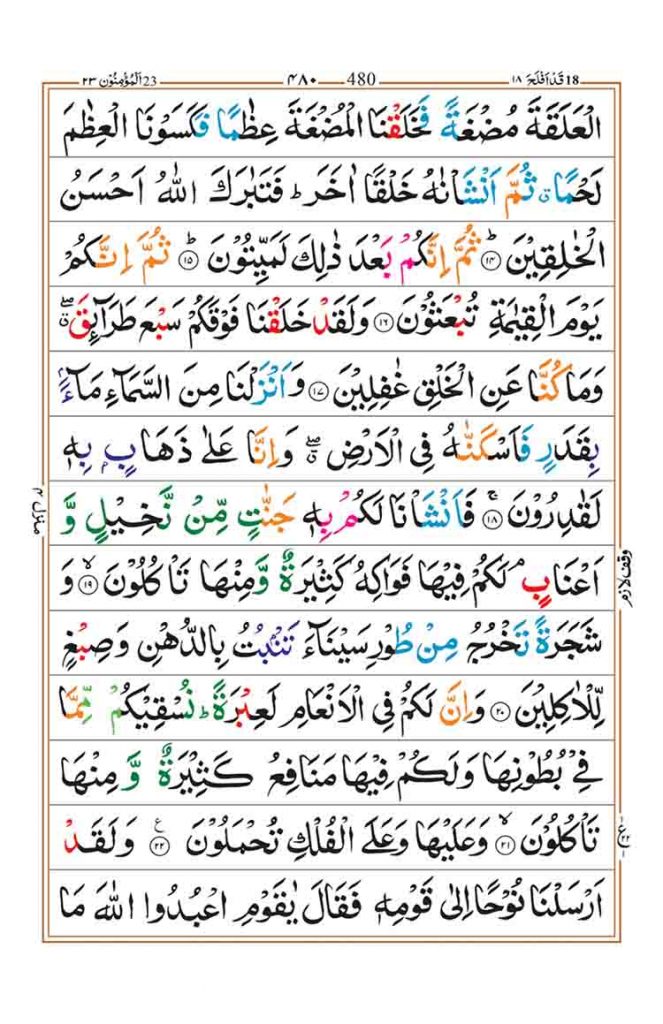 قَدْ اَفْلَحَ ١٨ 18 480 ۴۸۰ اَلْمُؤْمِنُوْن ٢٣ 23
الْعَلَقَةَ مُضْغَةً فَخَلَقْنَا الْمُضْغَةَ عِظٰمًا فَكَسَوْنَا الْعِظٰمَ
لَحْمًا ۗ ثُمَّ اَنْشَاْنٰهُ خَلْقًا اٰخَرَ ؕ فَتَبٰرَكَ اللّٰهُ اَحْسَنُ
الْخٰلِقِيْنَ ؕ ﴿۱۴﴾ ثُمَّ اِنَّكُمْ بَعْدَ ذٰلِكَ لَمَيِّتُوْنَ ؕ ﴿۱۵﴾ ثُمَّ اِنَّكُمْ
يَوْمَ الْقِيٰمَةِ تُبْعَثُوْنَ ﴿۱۶﴾ وَلَقَدْ خَلَقْنَا فَوْقَكُمْ سَبْعَ طَرَآئِقَ ۖۗ
وَمَا كُنَّا عَنِ الْخَلْقِ غٰفِلِيْنَ ﴿۱۷﴾ وَاَنْزَلْنَا مِنَ السَّمَآءِ مَآءًۢ
بِقَدَرٍ فَاَسْكَنّٰهُ فِى الْاَرْضِ ۖۗ وَاِنَّا عَلٰى ذَهَابٍۢ بِهٖ
لَقٰدِرُوْنَ ۚ ﴿۱۸﴾ فَاَنْشَاْنَا لَكُمْ بِهٖ جَنّٰتٍ مِّنْ نَّخِيْلٍ وَّ
اَعْنَابٍ ۘ لَكُمْ فِيْهَا فَوَاكِهُ كَثِيْرَةٌ وَّمِنْهَا تَاْكُلُوْنَ ۙ ﴿۱۹﴾ وَ
شَجَرَةً تَخْرُجُ مِنْ طُوْرِ سَيْنَآءَ تَنْۢبُتُ بِالدُّهْنِ وَصِبْغٍ
لِّلْاٰكِلِيْنَ ﴿۲۰﴾ وَاِنَّ لَكُمْ فِى الْاَنْعَامِ لَعِبْرَةً ؕ نُسْقِيْكُمْ مِّمَّا
فِىْ بُطُوْنِهَا وَلَكُمْ فِيْهَا مَنَافِعُ كَثِيْرَةٌ وَّمِنْهَا
تَاْكُلُوْنَ ۙ ﴿۲۱﴾ وَعَلَيْهَا وَعَلَى الْفُلْكِ تُحْمَلُوْنَ ﴿۲۲﴾ ع وَلَقَدْ
اَرْسَلْنَا نُوْحًا اِلٰى قَوْمِهٖ فَقَالَ يٰقَوْمِ اعْبُدُوا اللّٰهَ مَا
وقف لازم
منزل ۴
ع ۲۲